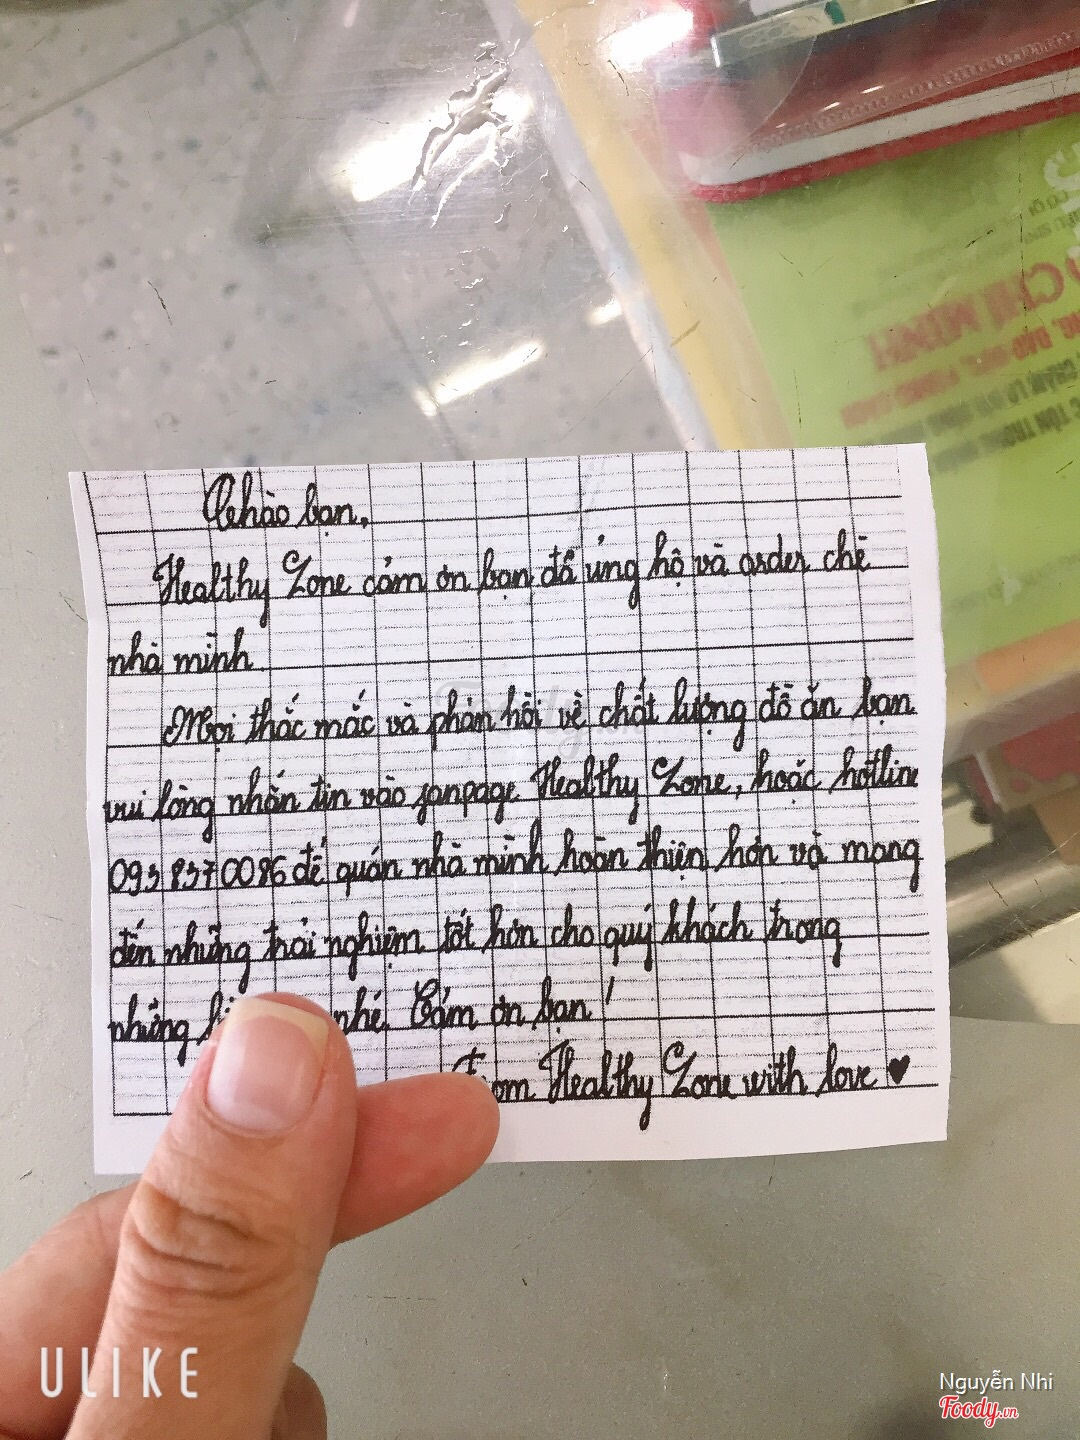 CHÍ MINH
Chào bạn,
Healthy Zone cảm ơn bạn đã ủng hộ và order chè
nhà mình
Mọi thắc mắc và phản hồi về chất lượng đồ ăn bạn
vui lòng nhắn tin vào fanpage Healthy Zone, hoặc hotline
093 837 0086 để quán nhà mình hoàn thiện hơn và mang
đến những trải nghiệm tốt hơn cho quý khách trong
những nhé. Cảm ơn bạn!
From Healthy Zone with love ♥
ULIKE
Nguyễn Nhi
Foody.vn